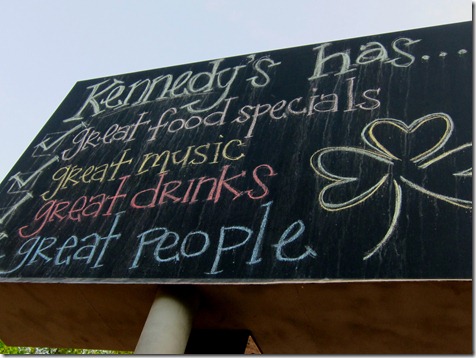 Kennedy's has...
great food specials
great music
great drinks
great people